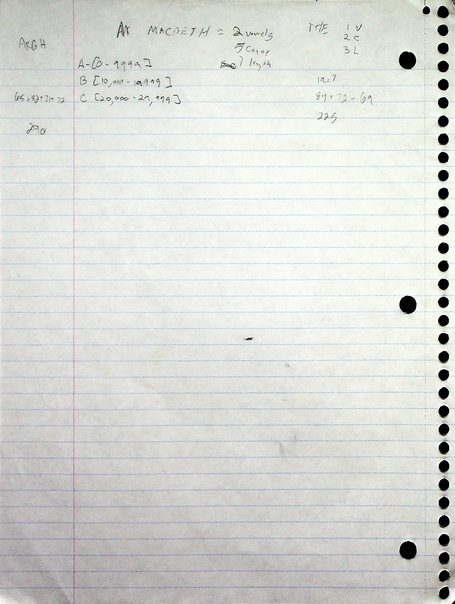 ARGH
MACBETH = 2 vowels
5 Conso
7 length
THE 1 V
2 C
3 L
A - [0 - 9999]
B [10,000 - 19999]
C [20,000 - 29,999]
65 + 82 + 71 + 72
290
84 + 72 + 69
225